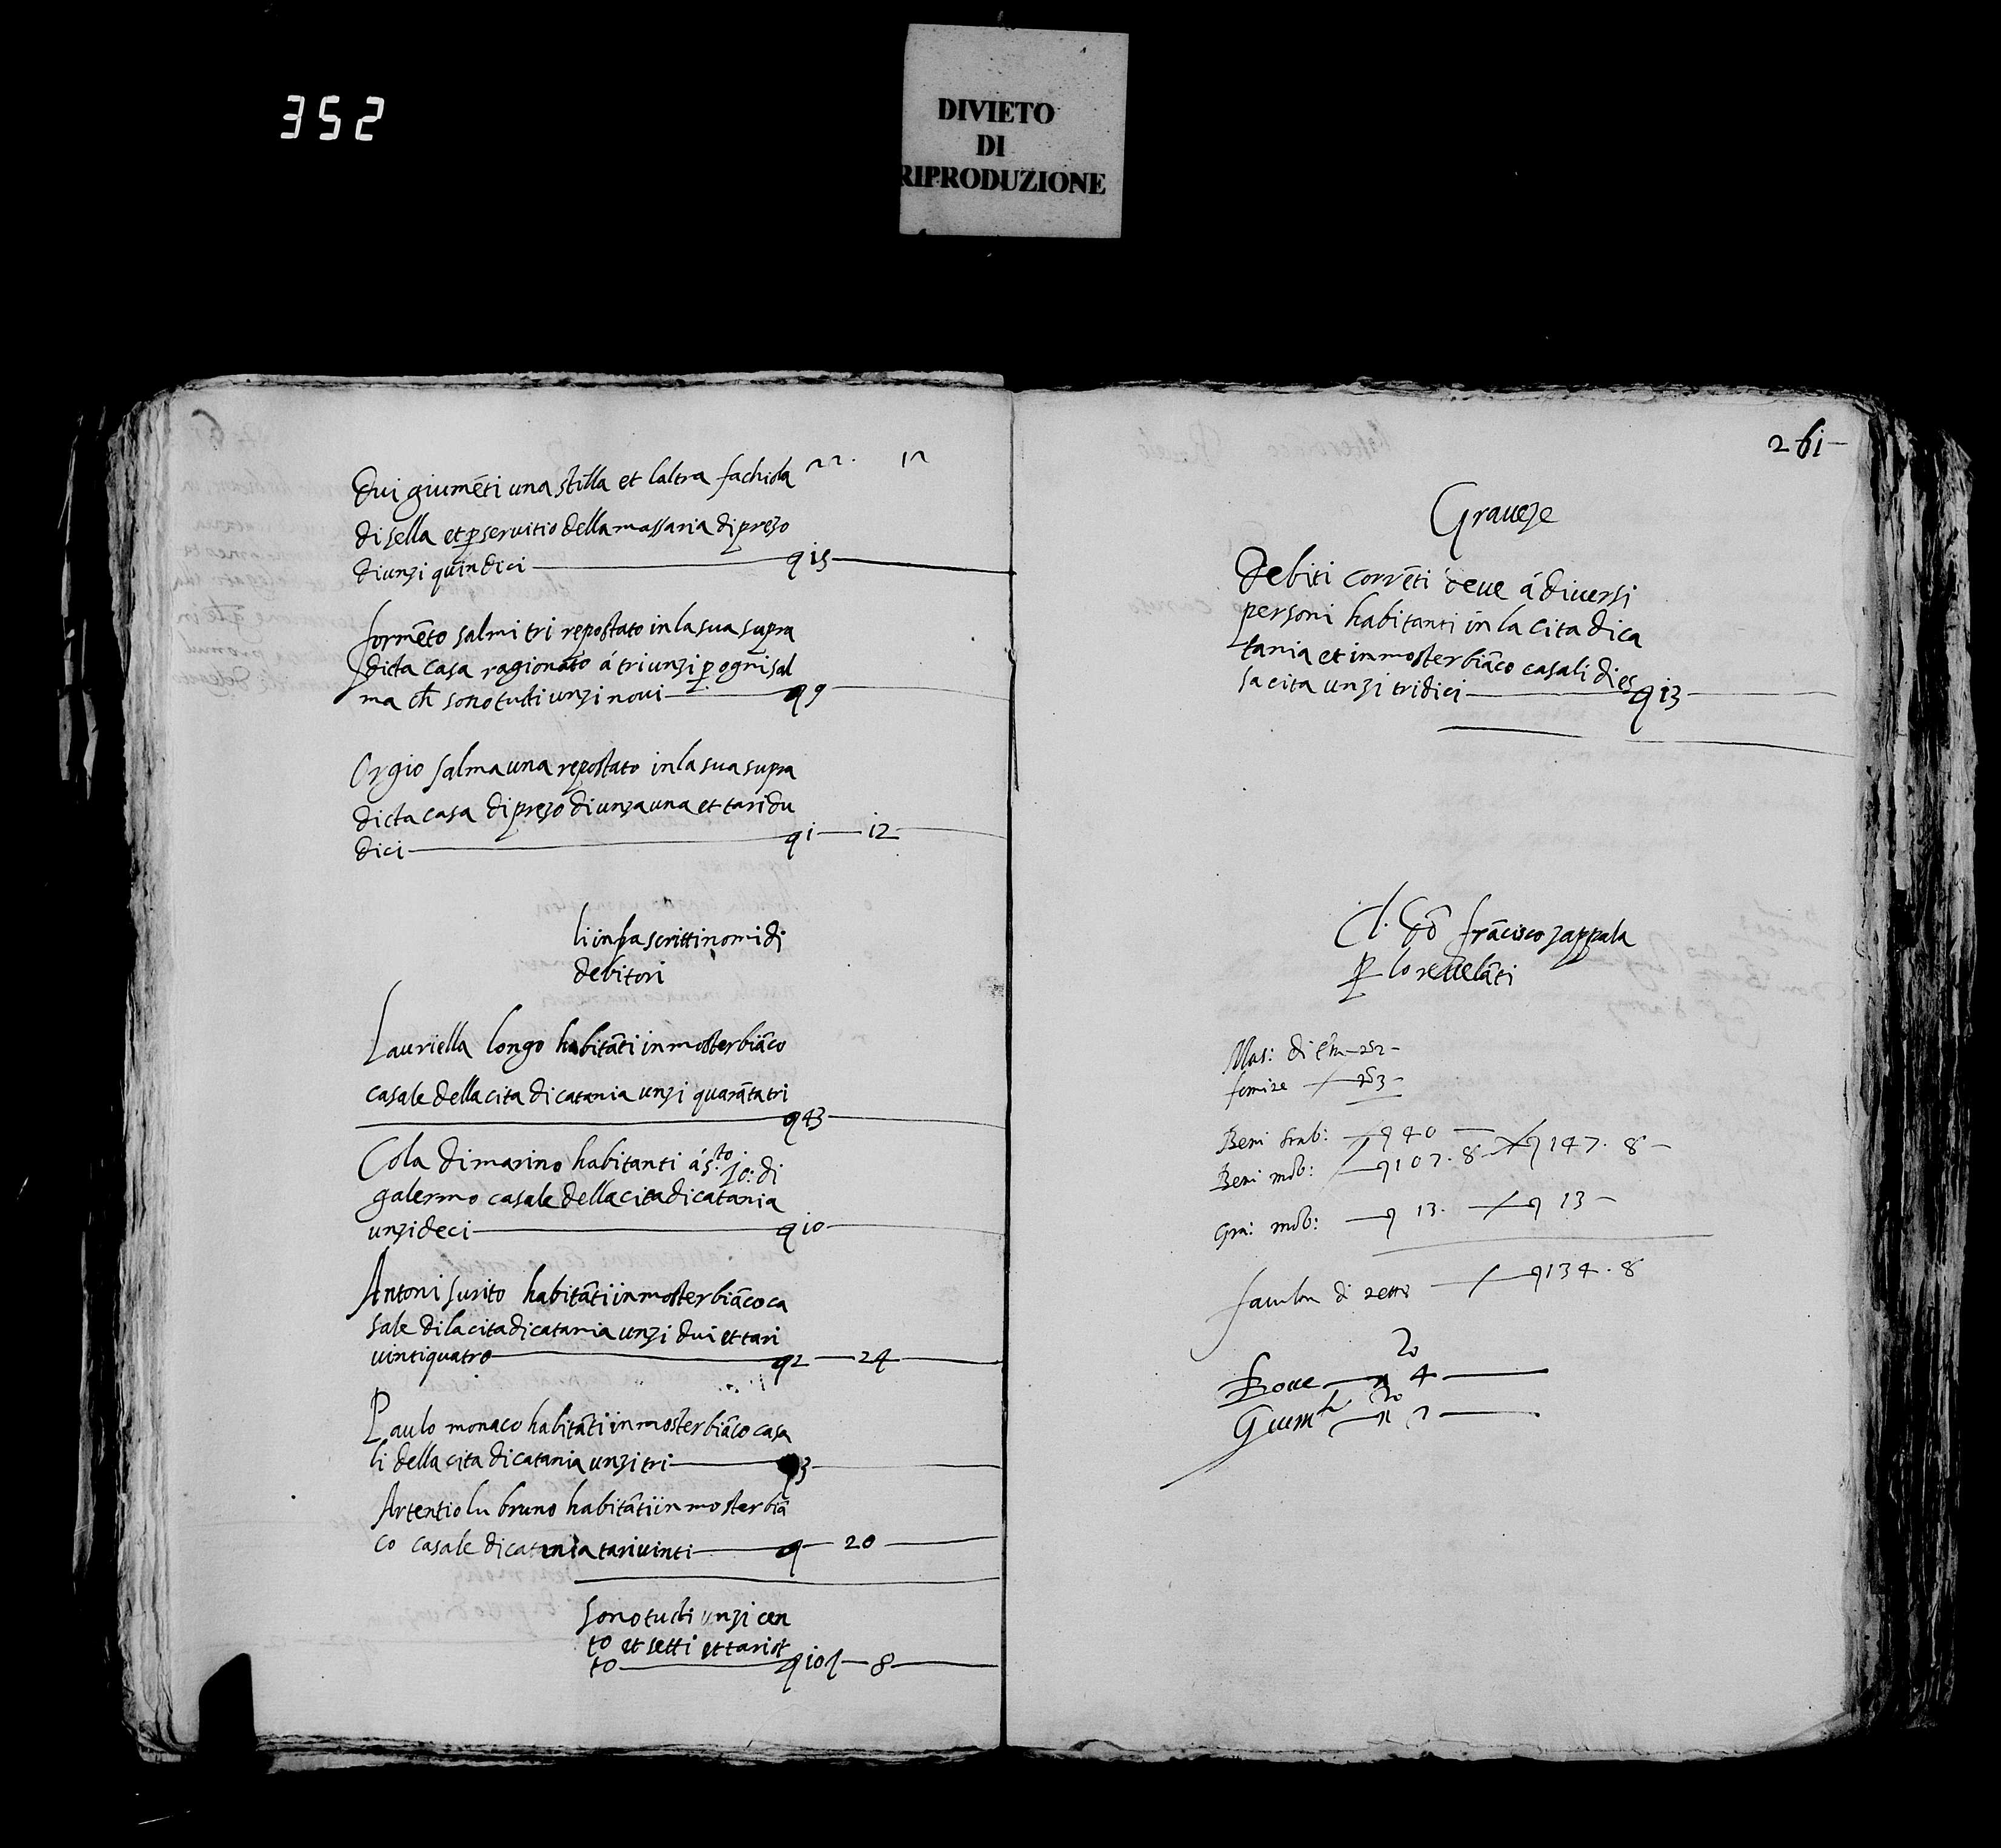 352
DIVIETO
DI
RIPRODUZIONE
22. 12
Dui giumēti una stilla et laltra fachiola
di sella et p servitio della massaria di prezo
di unzi quindici q 15
formēto salmi tri repostato in la sua supra
dicta casa ragionato á tri unzi p ogni sal
ma ch sono tutti unzi novi q 9
Orgio salma una repostato in la sua supra
dicta casa di prezo di unza una et tari du
dici q 1 12
li infra scritti nomi di
debitori
Lauriella longo habitāti in mosterbiāco
casale della cita di catania unzi quarāta tri
q 43
Cola di marino habitanti á s.to Jo: di
galermo casale della cita di catania
unzi deci q 10
Antoni surito habitāti in mosterbiāco ca
sale di la cita di catania unzi dui et tari
vintiquatro q 2 24
Paulo monaco habitāti in mosterbiāco casa
li della cita di catania unzi tri q 3
Artentio lu bruno habitāti in mosterbiā
co casale di catania tari vinti q 20
sono tucti unzi cen
to et setti et tari ot
to q 107 8
261
Graveze
Debiti corrēti deve á diversi
personi habitanti in la cita di ca
tania et in mosterbiāco casali di es
sa cita unzi tridici q 13
Cl. frācisco zappala
p lo revelāti
Mas:
femine 3
Beni stab: q 40
Beni mob: q 107. 8 q 147. 8
Gra: mob: q 13. q 13
q 134. 8
20
Bove n 4
20
Gium n 2